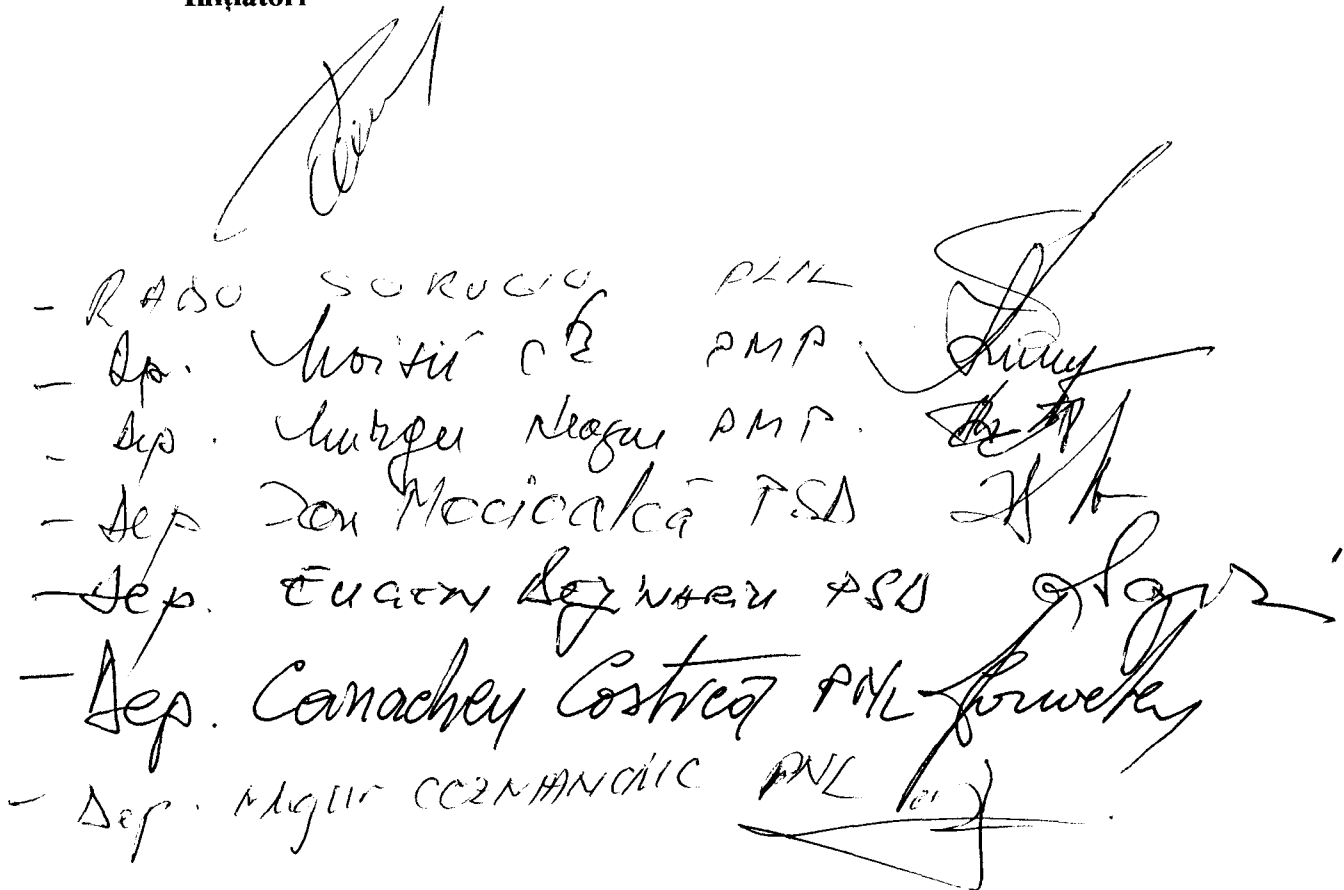 Inițiatori
- RADU SURUGIU PNL
- Dp. Moisii PMP.
- Dep. Murgu Neagu PMP.
- Dep Ion Mocioalcă PSD
- Dep. EUGEN BEJINARIU PSD
- Dep. Canacheu Costică PNL
- Dep. Mugur COZMANCIUC PNL